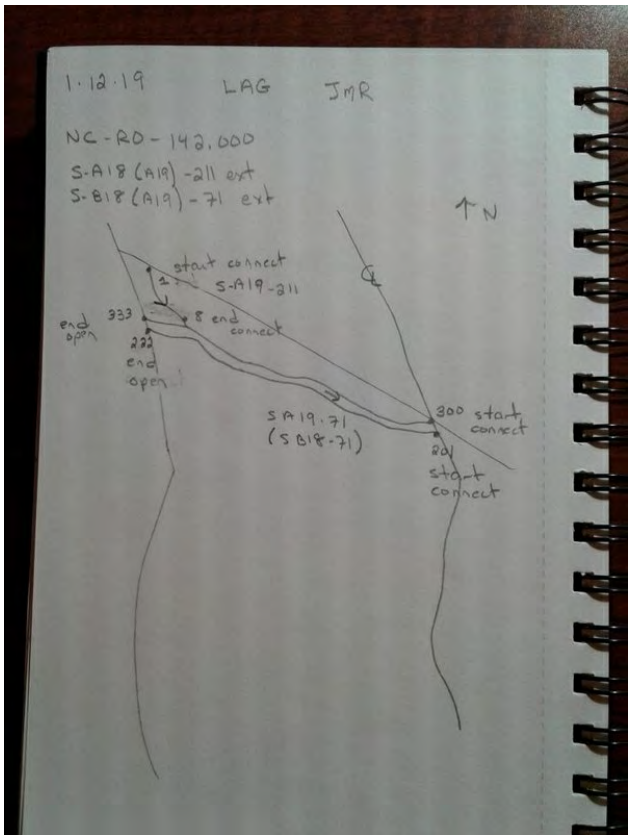 1.12.19 LAG JMR
NC-RD-142.000
S-A18 (A19) -211 ext
S-B18 (A19) - 71 ext
↑ N
℄
1
start connect
S-A19-211
333
end open
8 end connect
222
end open
SA19-71
(SB18-71)
300 start connect
201
start connect